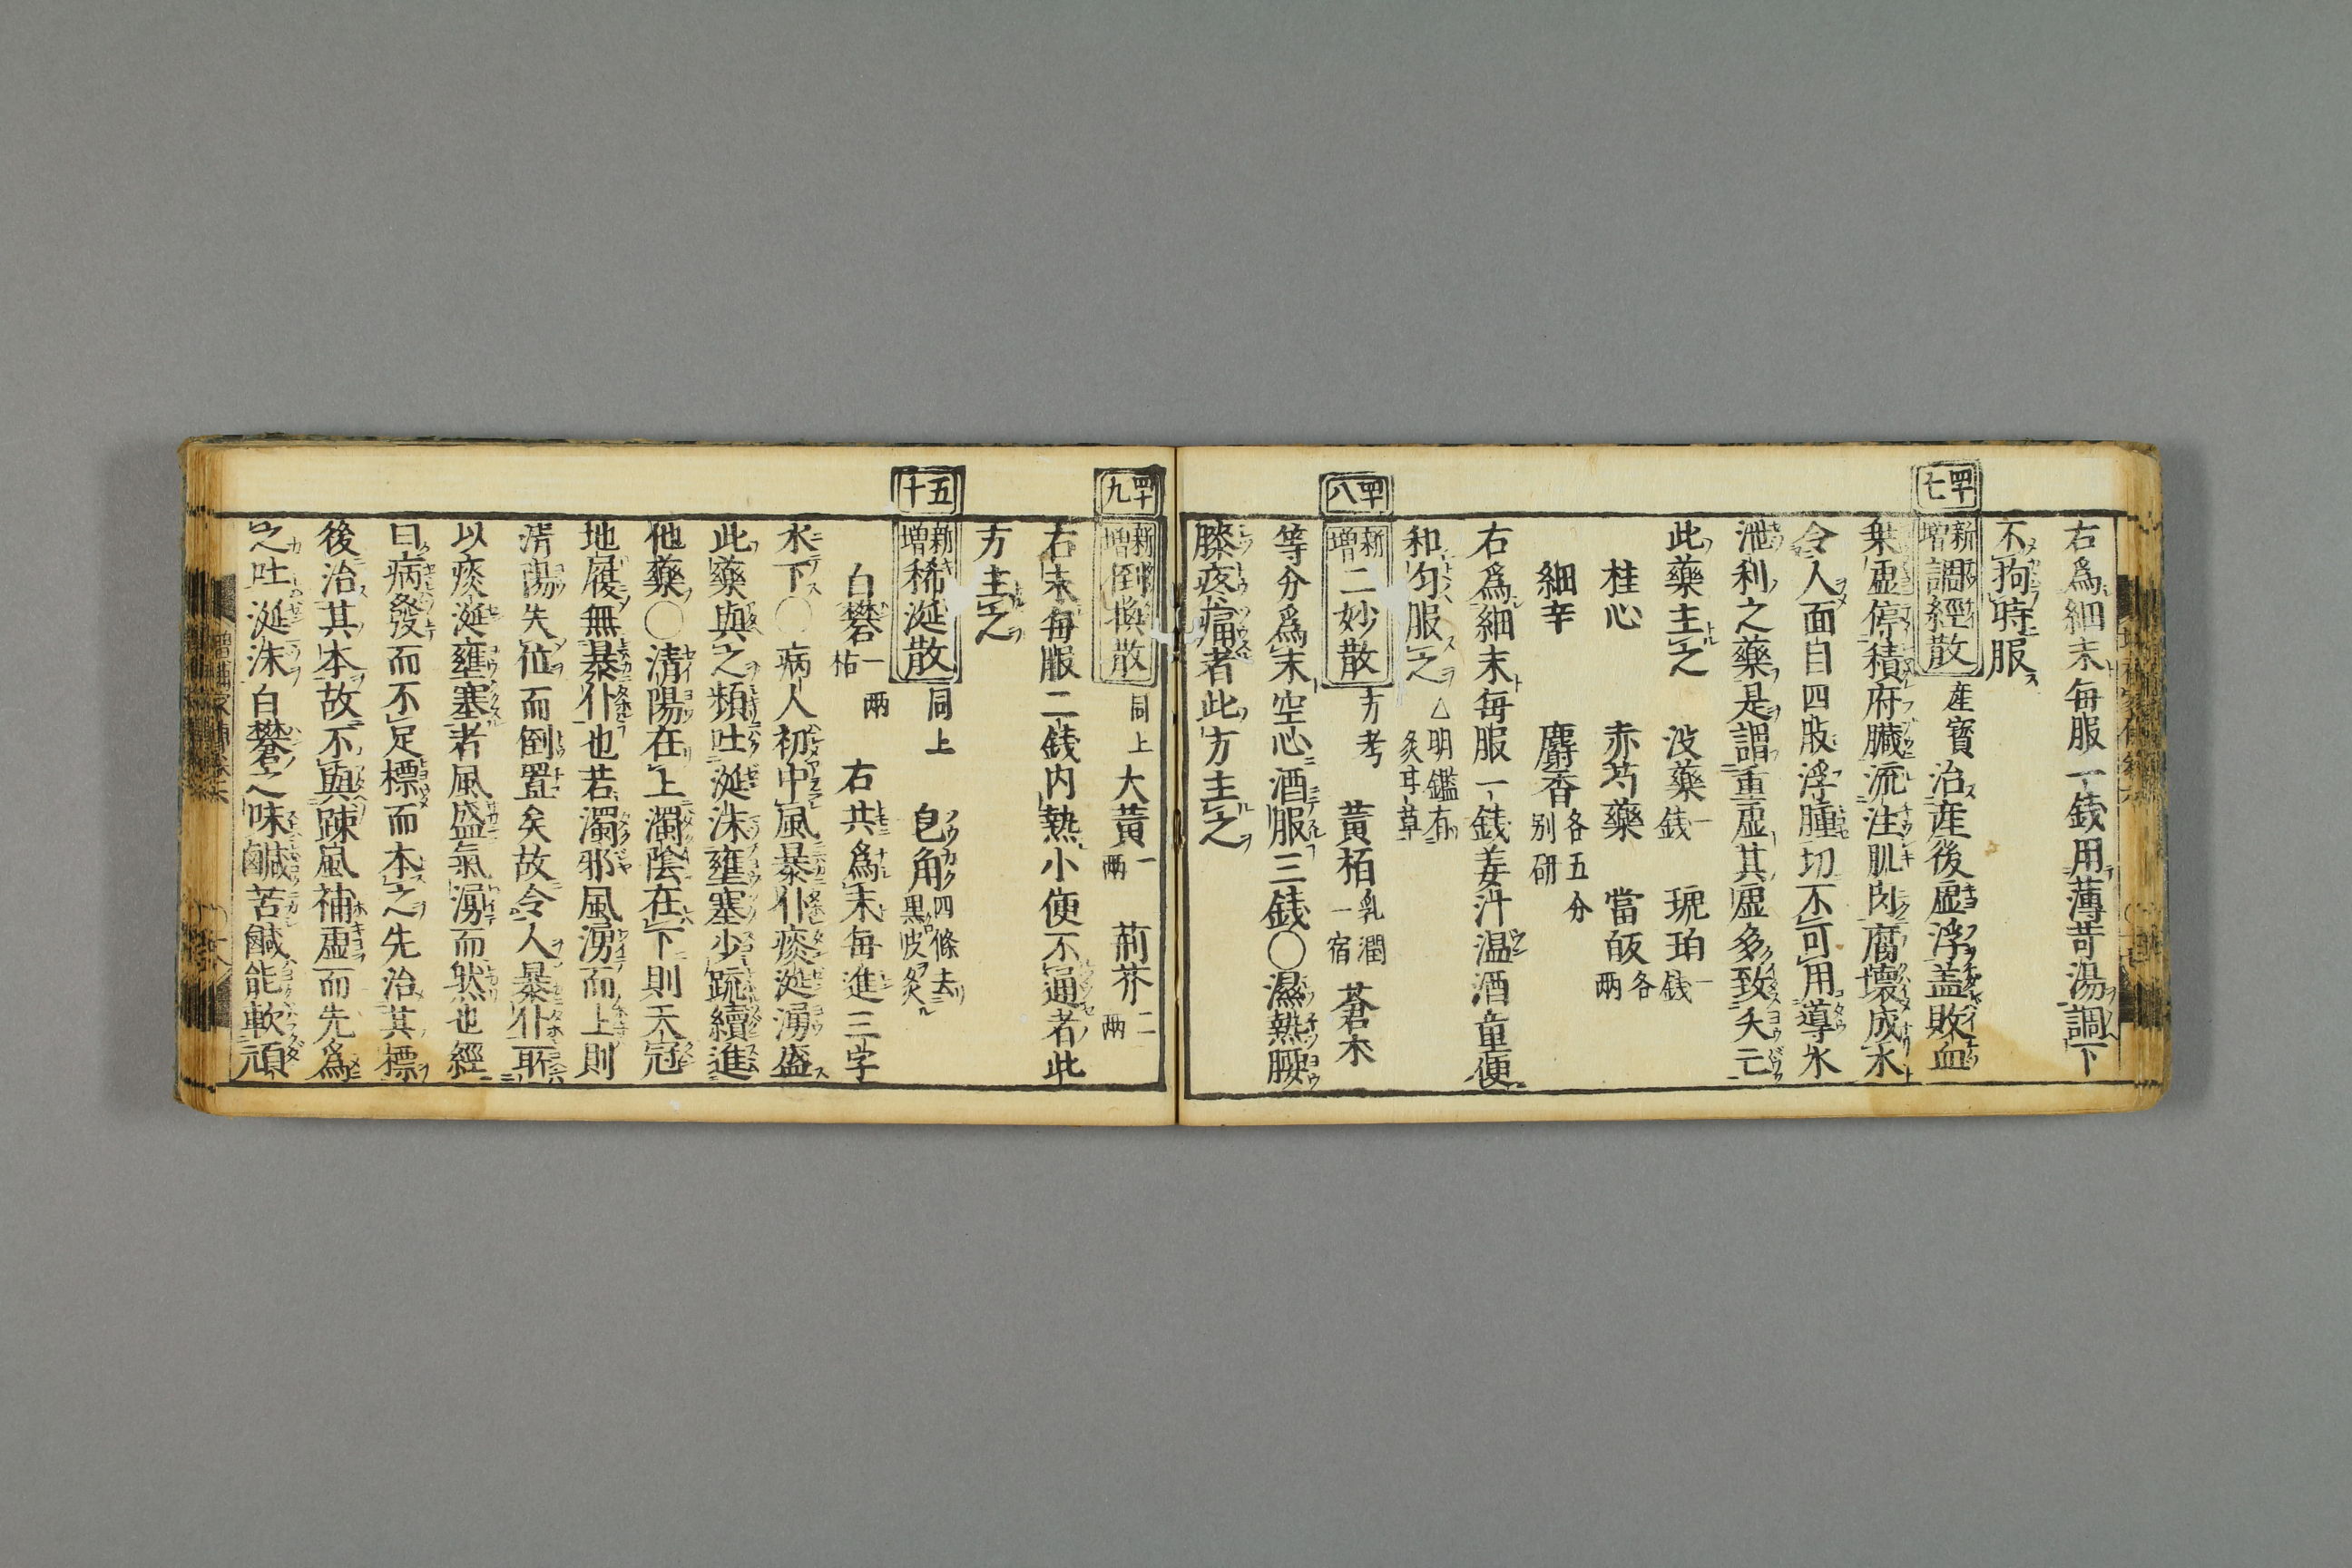 右爲細末毎服一錢用薄荷湯調下
不拘時服
四十七 新增調經散 産寳 治産後虚浮盖敗血
乗虚停積府臓流注肌肉腐壊成水
令人面目四肢浮腫切不可用導水
泄利之藥是謂重虚其虚多致夭亡
此藥主之 没藥一錢 琥珀一錢
桂心 赤芍藥 當皈各兩
細辛 麝香各五分別研
右爲細末毎服一錢姜汁温酒童便
和匀服之 △明鑑有炙甘草
四十八 新增二妙散 方考 黃栢乳潤一宿 蒼朮
等分爲末空心酒服三錢○濕熱腰
膝疼痛者此方主之
四十九 新增倒換散 同上 大黃一兩 荊芥二兩
右末毎服二錢内熱小便不通者此
方主之
五十 新增稀涎散 同上 皀角四條去黒皮炙
白礬一兩枯 右共爲末毎進三字
水下○病人初中風暴仆痰涎湧盛
此藥與之頻吐涎沫壅塞少疏續進
他藥○清陽在上濁陰在下則天冠
地履無暴仆也若濁邪風湧而上則
清陽失位而倒置矣故令人暴仆耶
以痰涎壅塞者風盛氣湧而然也經
曰病發而不足標而本之先治其標
後治其本故不與踈風補虚而先爲
之吐涎沫白礬之味鹹苦鹹能軟頑